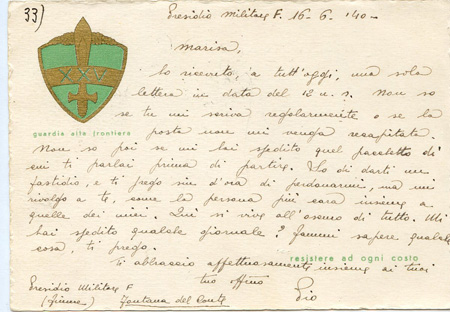 33)
Presidio Militare F. 16-6-'40-
Marisa,
ho ricevuto, a tutt'oggi, una sola
lettera in data del 12 u. s. Non so
se tu mi scriva regolarmente o se la
guardia alla frontiera
posta non mi venga recapitata.
Non so poi se mi hai spedito quel pacchetto di
cui ti parlai prima di partire. So di darti un
fastidio, e ti prego sin d'ora di perdonarmi, ma mi
rivolgo a te, come la persona più cara insieme a
quelle dei miei. Qui si vive all'oscuro di tutto. Mi
hai spedito qualche giornale? Fammi sapere qualche
cosa, ti prego.
resistere ad ogni costo
Ti abbraccio affettuosamente insieme ai tuoi
Presidio Militare F
tuo affmo
(Fiume) Fontana del Conte
Pio
XXV